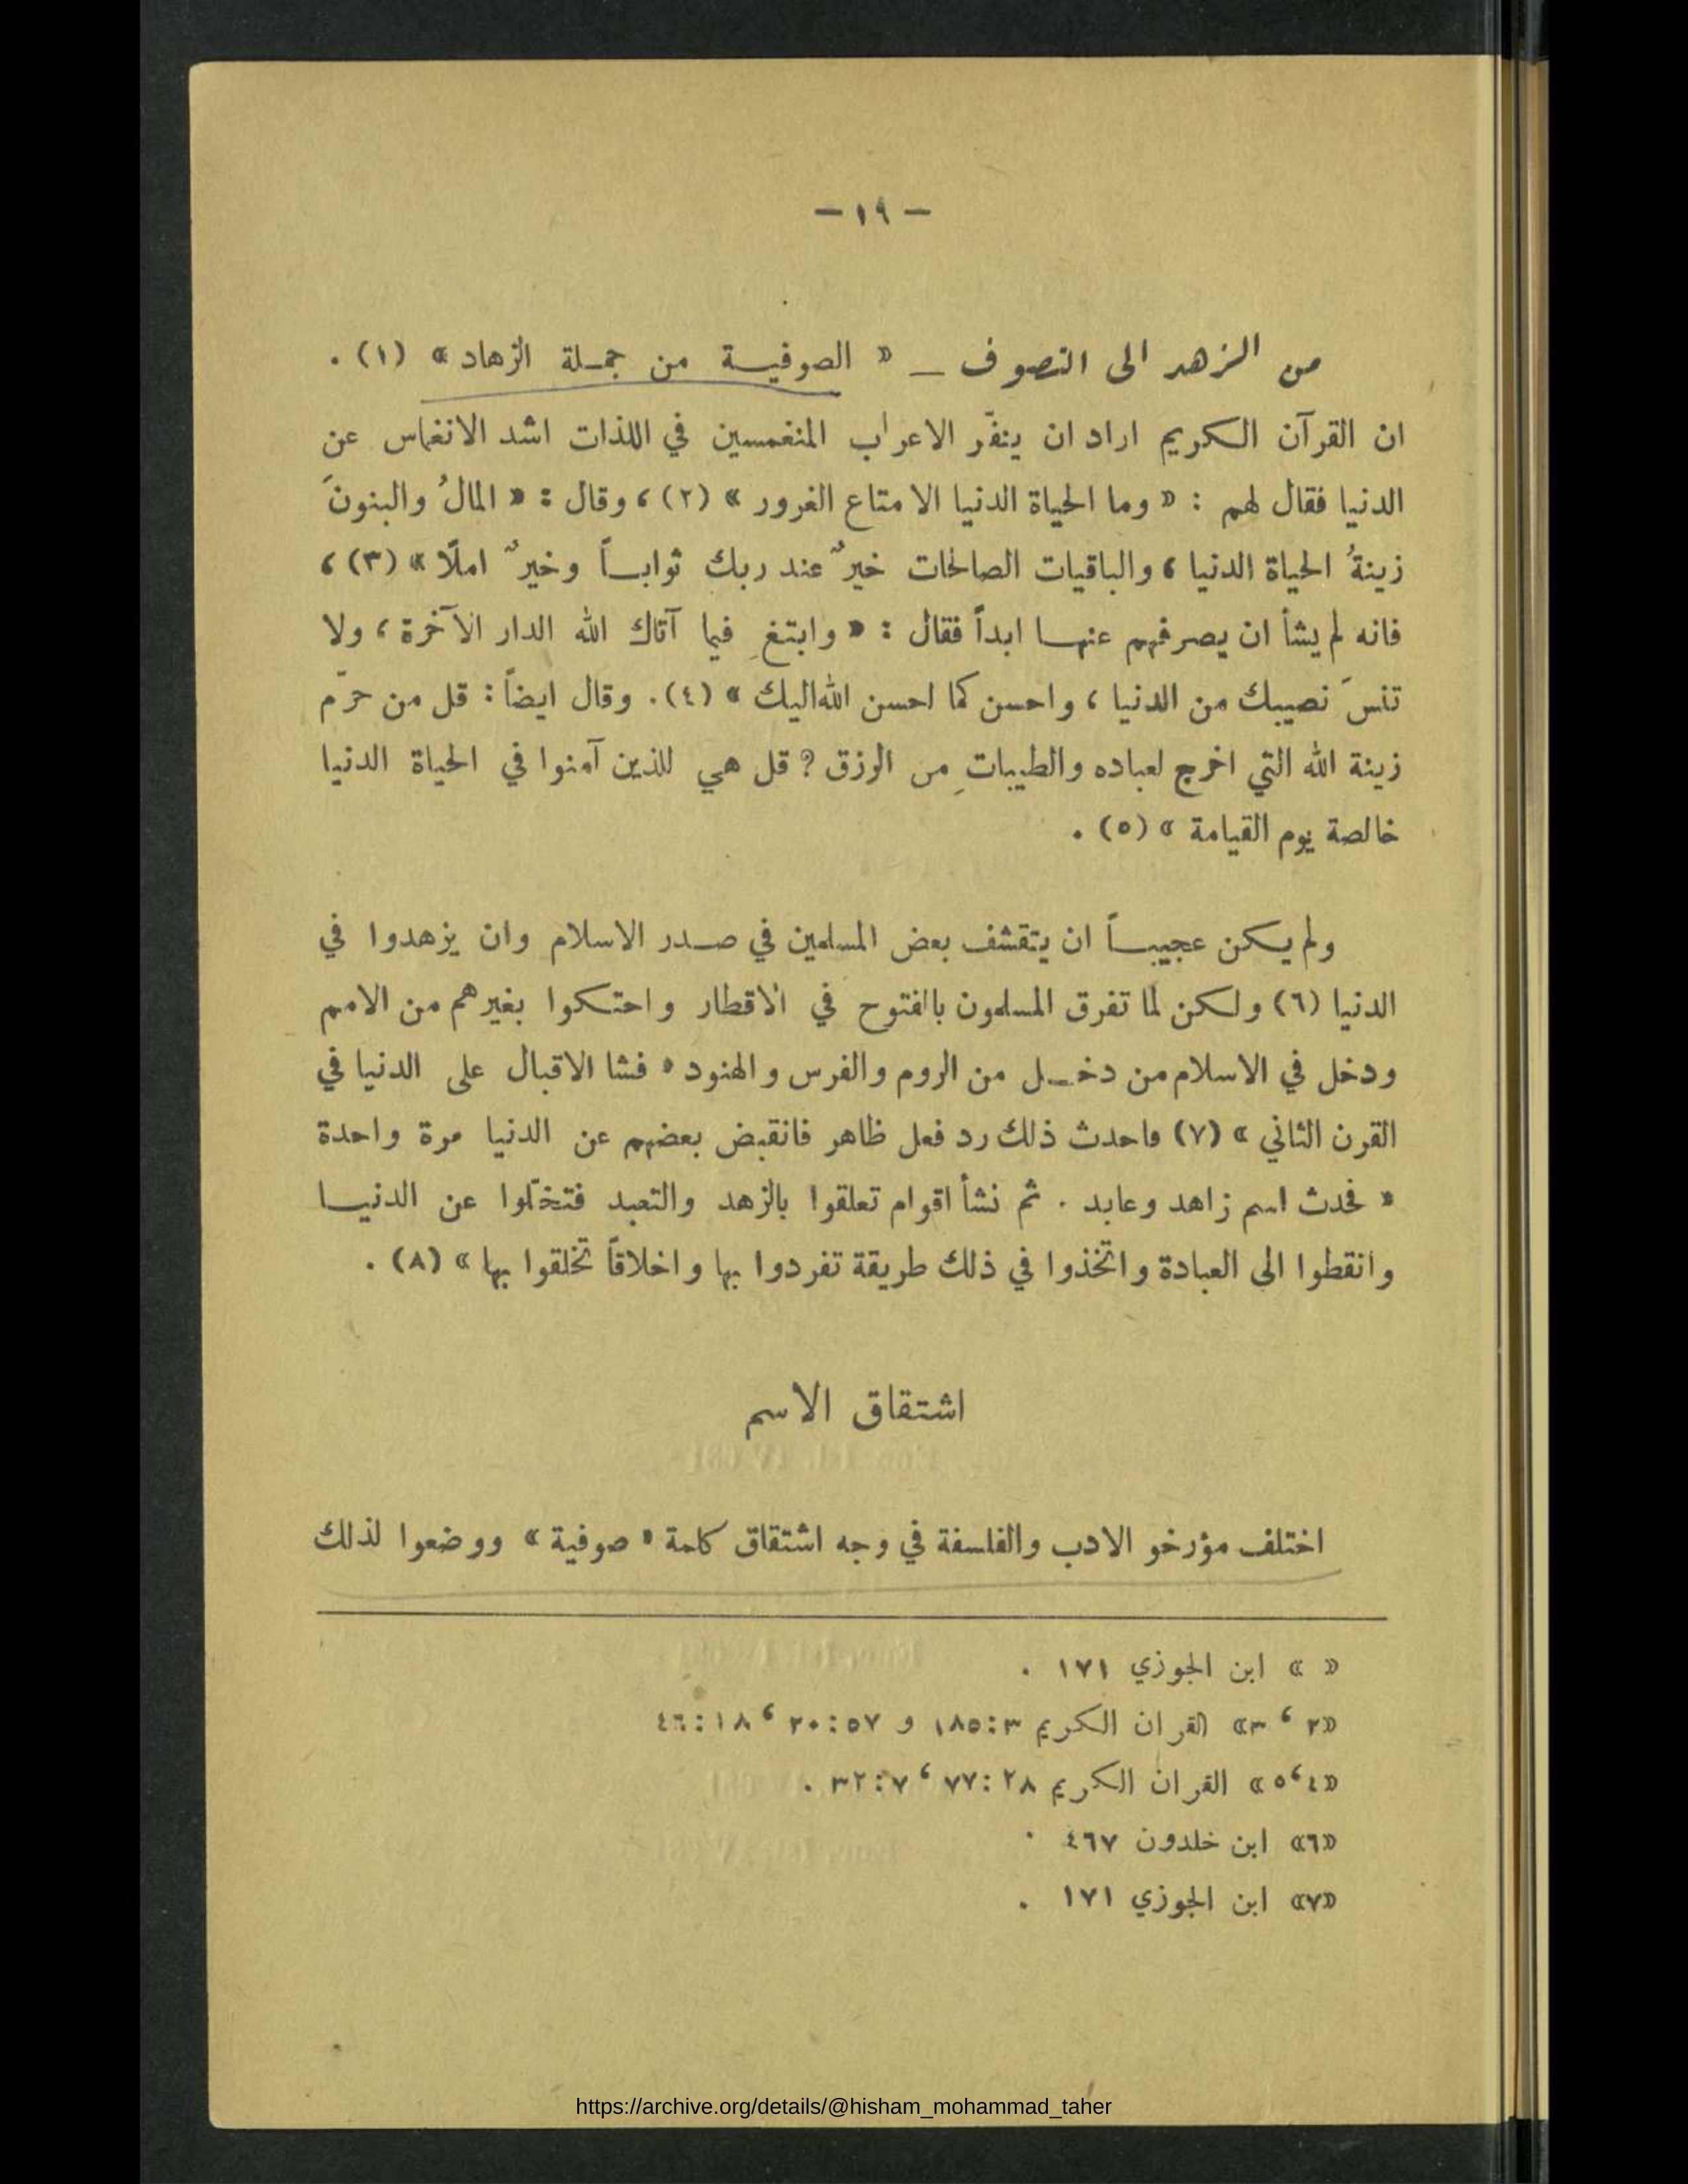 — ١٩ —
من الزهد الى التصوف — « الصوفية من جملة الزهاد » (١) .
ان القرآن الكريم اراد ان ينفّر الاعراب المنغمسين في اللذات اشد الانغماس عن
الدنيا فقال لهم : « وما الحياة الدنيا الا متاع الغرور » (٢) ، وقال : « المالُ والبنونَ
زينةُ الحياة الدنيا ، والباقيات الصالحات خيرٌ عند ربك ثواباً وخيرٌ املًا » (٣) ،
فانه لم يشأ ان يصرفهم عنها ابداً فقال : « وابتغِ فيما آتاك الله الدار الآخرة ، ولا
تنسَ نصيبك من الدنيا ، واحسن كما احسن الله اليك » (٤) . وقال ايضاً : قل من حرّم
زينة الله التي اخرج لعباده والطيباتِ من الرزق ? قل هي للذين آمنوا في الحياة الدنيا
خالصة يوم القيامة » (٥) .
ولم يكن عجيباً ان يتقشف بعض المسلمين في صدر الاسلام وان يزهدوا في
الدنيا (٦) ولكن لما تفرق المسلمون بالفتوح في الاقطار واحتكوا بغيرهم من الامم
ودخل في الاسلام من دخل من الروم والفرس والهنود « فشا الاقبال على الدنيا في
القرن الثاني » (٧) فاحدث ذلك رد فعل ظاهر فانقبض بعضهم عن الدنيا مرة واحدة
« فحدث اسم زاهد وعابد . ثم نشأ اقوام تعلقوا بالزهد والتعبد فتخلّوا عن الدنيا
وانقطوا الى العبادة واتخذوا في ذلك طريقة تفردوا بها واخلاقاً تخلقوا بها » (٨) .
اشتقاق الاسم
اختلف مؤرخو الادب والفلسفة في وجه اشتقاق كلمة « صوفية » ووضعوا لذلك
« » ابن الجوزي ١٧١ .
«٢ ، ٣» القران الكريم ٣:١٨٥ و ٥٧:٢٠ ، ١٨:٤٦
«٤،٥» القران الكريم ٢٨:٧٧ ، ٧:٣٢ .
«٦» ابن خلدون ٤٦٧ .
«٧» ابن الجوزي ١٧١ .
https://archive.org/details/@hisham_mohammad_taher